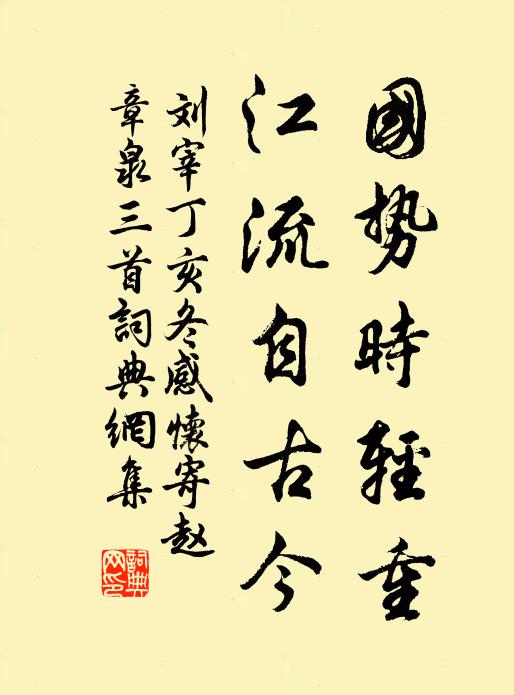 國势時輕重
江流自古今
刘宰丁亥冬感懷寄赵
章泉三首詞典網集
詞典
网印